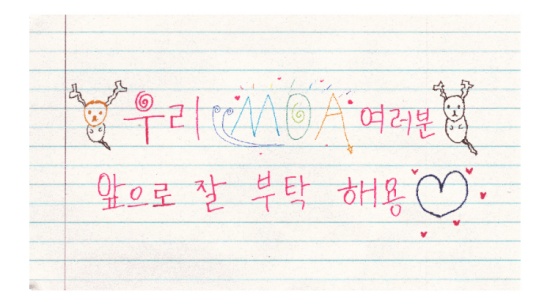 우리 MOA 여러분
앞으로 잘 부탁 해용